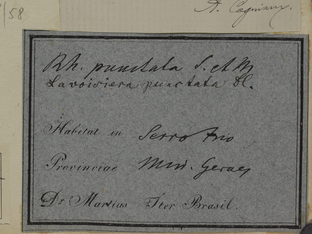 /58
A. Cogniaux
Rh. punctata S. et M
Lavoisiera punctata DC.
Habitat in Serro Frio
Provinciae Min. Geraes
Dr Martius Iter Brasil.